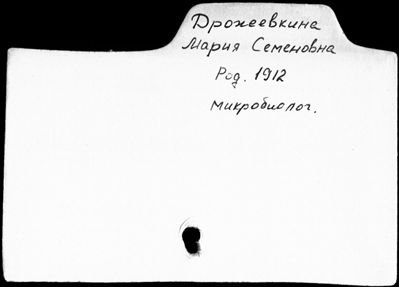 Дрожеевкина
Мария Семеновна
Род. 1912
микробиолог.